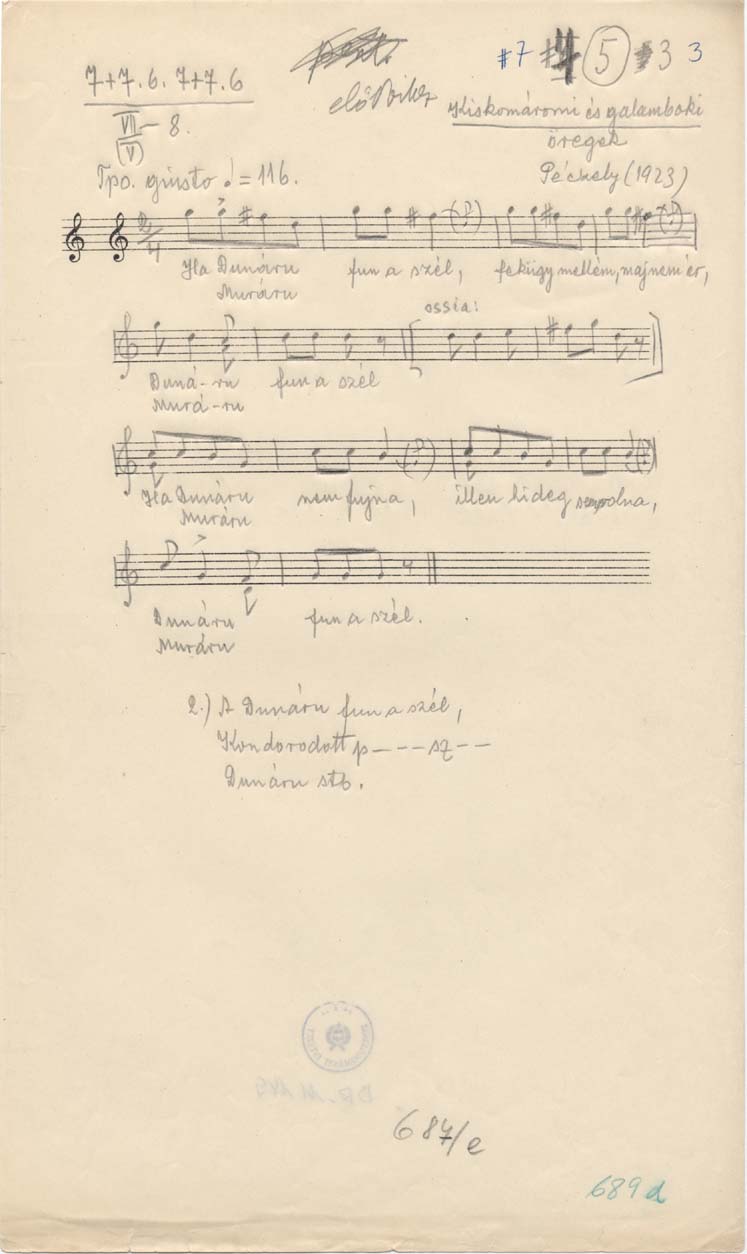 #7 5 3 3
7+7.6. 7+7.6
VII – 8.
(V)
Kiskomáromi és galamboki
öregek
Péczely (1923)
Tpo. giusto ♩=116.
2/4
Ha Dunáru fun a szél, fekügy mellém, majnem ér,
Muráru
ossia:
Duná-ru fun a szél
Murá-ru
Ha Dunáru nem fujna, illen hideg se volna,
Muráru
Dunáru fun a szél.
Muráru
2.) A Dunáru fun a szél,
Kondorodott p---sz--
Dunáru stb.
687/e
689 d